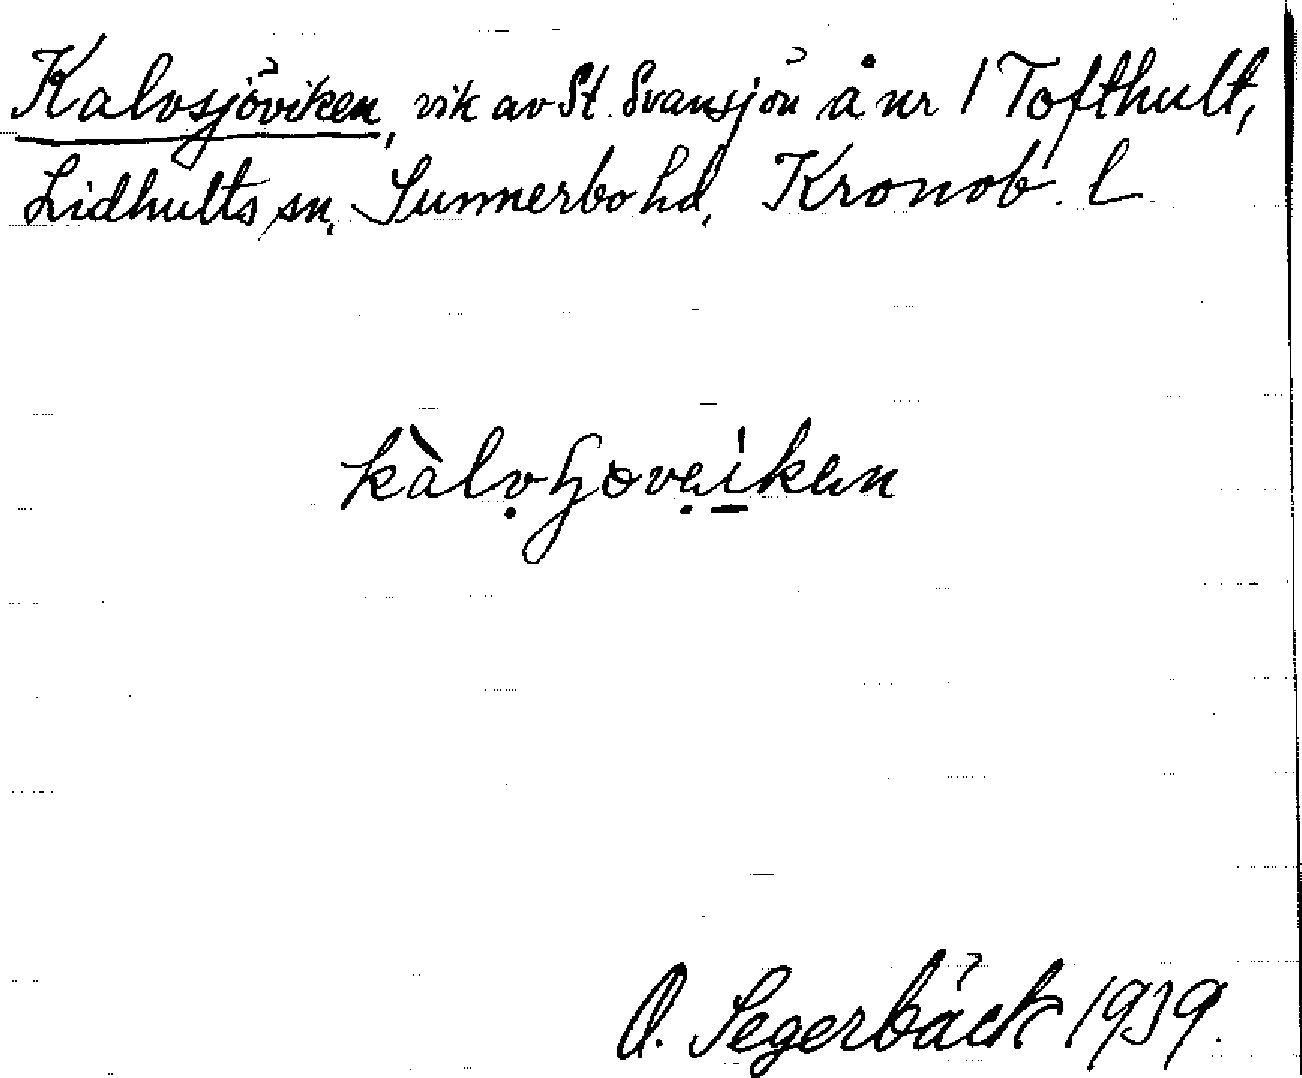 Kalvsjöviken, vik av St. Svansjön å nr 1 Tofthult,
Lidhults sn, Sunnerbo hd, Kronob. l
O. Segerbäck 1939.